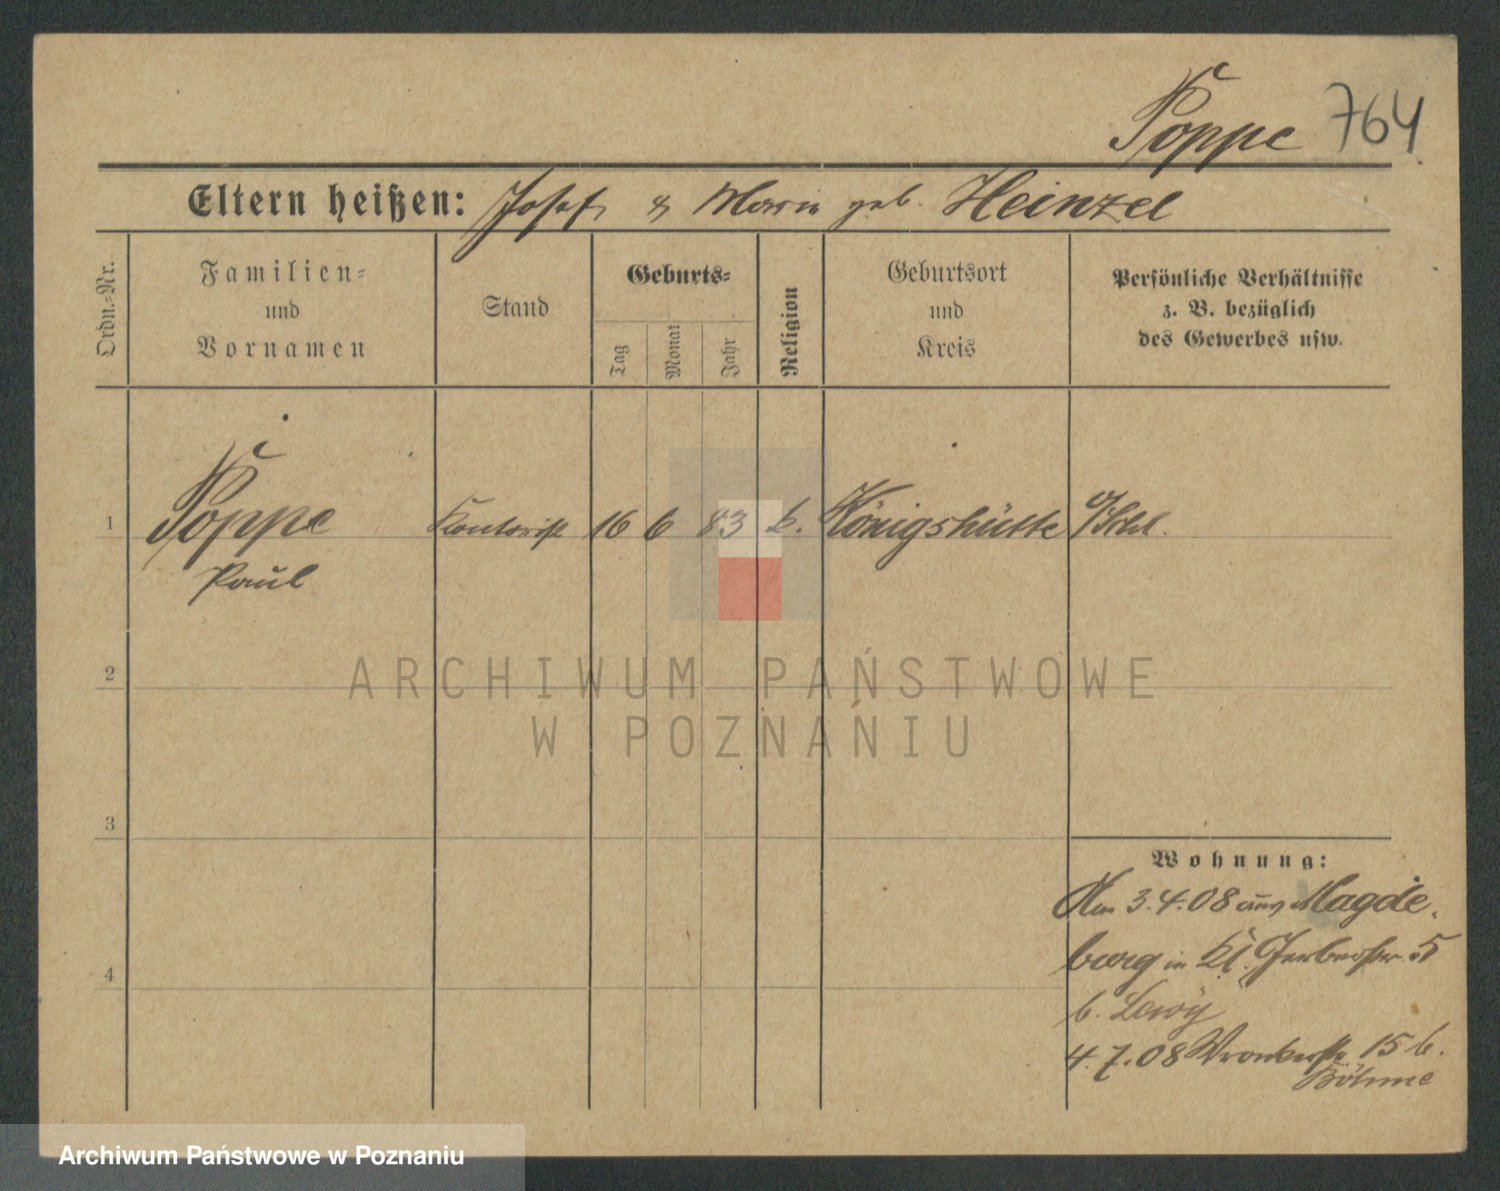 Poppe 764
Eltern heißen: Josef & Marie geb. Heinzel
Ordn.=Nr.
Familien=
und
Vornamen
Stand
Geburts=
Tag
Monat
Jahr
Religion
Geburtsort
und
Kreis
Persönliche Verhältnisse
z. B. bezüglich
des Gewerbes usw.
1 Poppe Kontorist 16 6 83 k. Königshütte O/Schl.
Paul
2
3
4
Wohnung:
3.4.08 aus Magde-
burg in Kl. Gerberstr. 5
b. Lewy
4.7.08 Wronkerstr. 15 b.
Böhme
ARCHIWUM PAŃSTWOWE
W POZNANIU
Archiwum Państwowe w Poznaniu